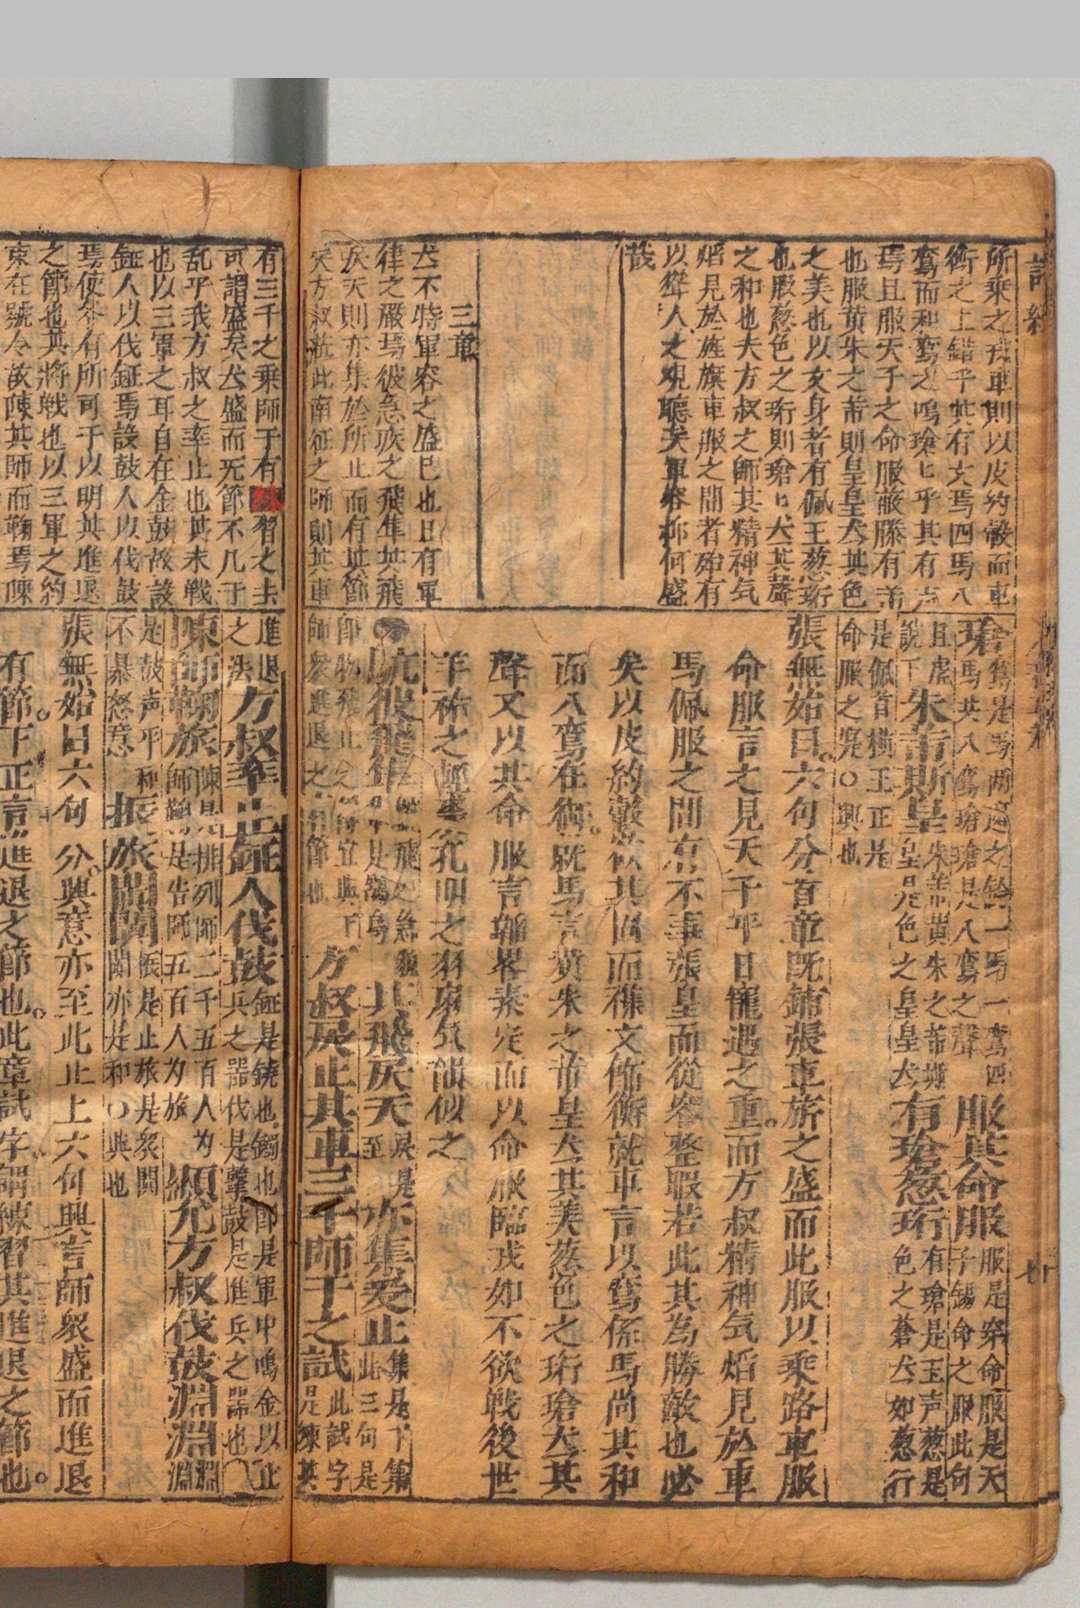 詩經
所乘之我車則以皮約轂而車
衡之上錯乎其有文焉四馬八
鸞而和鸞之鳴瑲匕乎其有声
焉且服天子之命服蔽膝有芾
也服黄朱之芾則皇皇犬其色
之美也以文身者有佩玉葱珩
也服葱色之珩則瑲匕犬其聲
之和也夫方叔之師其精神気
焰見於旌旗車服之間者殆有
以聳人之視聽矣軍容抑何盛
哉
三章
犬不特軍容之盛巳也日有軍
律之嚴焉彼急疾之飛隼其飛
戾天則亦集於所止而有其節
矣方叔蒞此南征之師則其車
有三千之乗師于有練習之夫
可謂盛矣犬盛而无節不几于
乱乎我方叔之率止也其未戦
也以三軍之耳自在金鼓故設
鉦人以伐鉦焉設鼓人以伐鼓
焉使各有所司于以明其進退
之節也其將戦也以三軍之約
束在號令故陳其師而鞠焉陳
瑲
馬其八鸞瑲瑲是八鸞之聲
服其命服
服是穿命服是天
子錫命之服此句
且虚
說下
朱芾斯皇
朱芾黄朱之芾斯
皇是色之皇皇犬
有瑲葱珩
有瑲是玉声葱是
色之蒼犬如葱行
是佩首橫玉正是
命服之完〇興也
張無始曰六句分首章既鋪張車旂之盛而此服以乘路車服
命服言之見天子平日寵遇之重而方叔精神気焰見於車
馬佩服之間有不事張皇而從容整暇若此其為勝敵也必
矣以皮約轂於其固而襍文飾衡就車言以鸞係馬尚其和
而八鸞在衡就馬言黄朱之芾皇犬其美葱色之珩瑲犬其
聲又以其命服言雖畧素定而以命服臨戎如不欲戦後世
羊祜之輕裘公孔明之羽扇気韻似之
鴥彼飛隼
其飛戾天
戾是
至
亦集爰止
集是下集
此三句是
即物飛止之節宜與下
師衆進退之有節也
方叔蒞止其車三千師干之試
此試字
是練其
進退
之法
方叔率止鉦人伐鼓
鉦是鐃也鐲也即是軍中鳴金以止
兵之器伐是擊鼓是進兵之器也〇
陳師鞠旅
陳是排列師二千五百人为
師鞠是告師五百人为旅
顯允方叔伐鼓淵淵
淵淵
是鼓声平和
不暴怒意
振旅闐闐
振是止旅是衆闐
闐亦是和〇興也
張無始曰六句分興意亦至此止上六句興言師衆盛而進退
有節下正言進退之節也此章試字謂練習其進退之節也